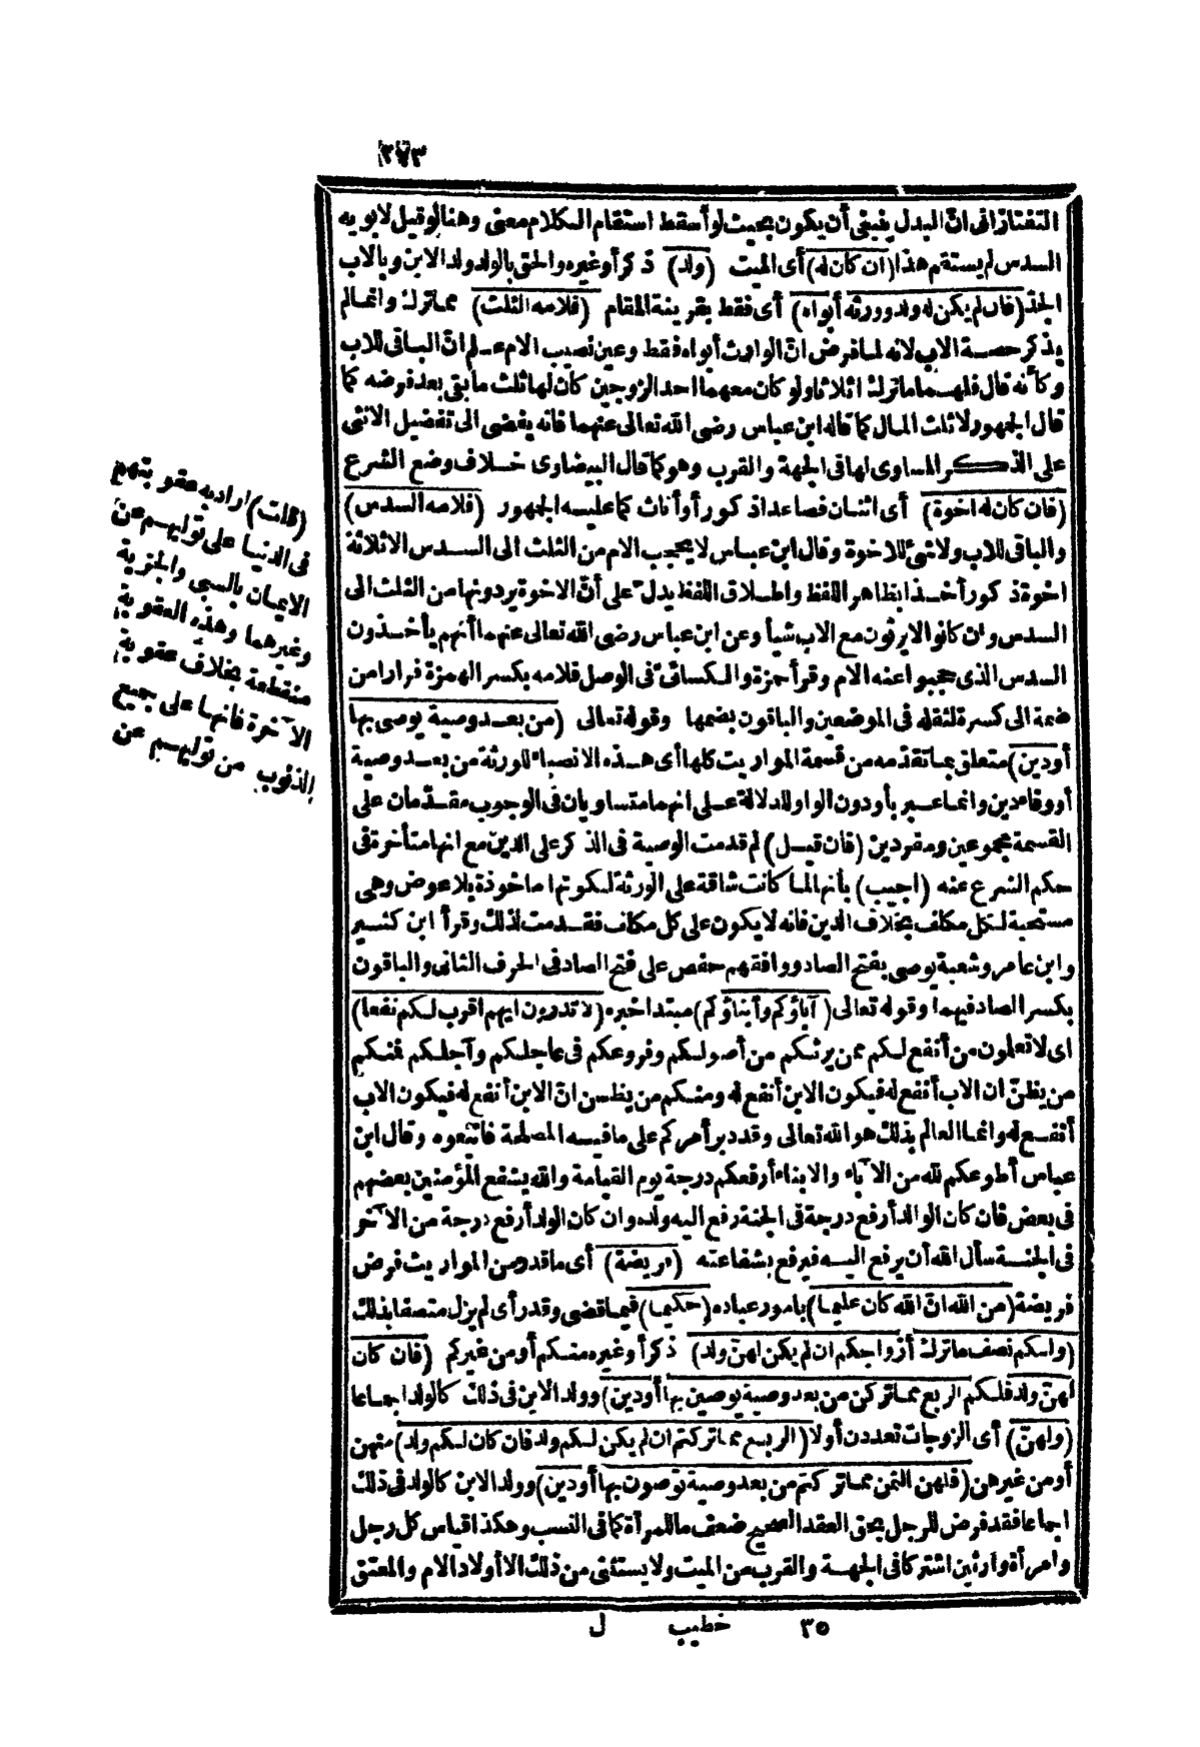 ٢٧٣
التفتازانى انّ البدل ينبغى أن يكون بحيث لو أسقط استقام الكلام معنى وهنا لو قيل لابويه
السدس لم يستقم هذا (ان كان له) أى الميت (ولد) ذكرأ وغيره والحق بالولد ولد الابن وبالاب
الجدّ (فان لم يكن له ولد وورثه أبواه) أى فقط بقرينة المقام (فلامه الثلث) مما ترك وانما لم
يذكر حصة الاب لانه لما فرض انّ الوارث أبواه فقط وعين نصيب الام علم انّ الباقى للاب
وكأنه قال فلهما ما ترك اثلاثا ولو كان معهما احد الزوجين كان لها ثلث ما بقى بعد فرضه كما
قال الجمهور لا ثلث المال كما قاله ابن عباس رضى الله تعالى عنهما فانه يفضى الى تفضيل الانثى
على الذكر المساوى لها فى الجهة والقرب وهو كما قال البيضاوى خلاف وضع الشرع
(فان كان له اخوة) أى اثنان فصاعدا ذكور أو أناث كما عليه الجمهور (فلامه السدس)
والباقى للاب ولا شئ للاخوة وقال ابن عباس لا يحجب الام من الثلث الى السدس الا ثلاثة
اخوة ذكور أخذا بظاهر اللفظ واطلاق اللفظ يدل على أنّ الاخوة يردونها من الثلث الى
السدس وان كانوا لا يرثون مع الاب شيأ وعن ابن عباس رضى الله تعالى عنهما أنهم يأخذون
السدس الذى حجبوا عنه الام وقرأ حمزة والكسائىّ فى الوصل فلامه بكسر الهمزة فرارا من
ضمة الى كسرة لثقله فى الموضعين والباقون بضمها وقوله تعالى (من بعد وصية يوصى بها
أودين) متعلق بما تقدّمه من قسمة المواريث كلها أى هذه الانصباء للورثة من بعد وصية
أو وفاء دين وانما عبر بأو دون الواو للدلالة على انهما متساويان فى الوجوب مقدّمان على
القسمة مجموعين ومفردين (فان قيل) لم قدمت الوصية فى الذكر على الدين مع انها متأخرة فى
حكم الشرع عنه (اجيب) بأنها لما كانت شاقة على الورثة لكونها ماخوذة بلا عوض وهى
مستحبة لكل مكلف بخلاف الدين فانه لا يكون على كل مكلف فقدمت لذلك وقرأ ابن كثير
وابن عامر وشعبة يوصى بفتح الصاد ووافقهم حفص على فتح الصاد فى الحرف الثانى والباقون
بكسر الصاد فيهما وقوله تعالى (آباؤكم وأبناؤكم) مبتدا خبره (لا تدرون ايهم اقرب لكم نفعا)
اى لا تعلمون من أنفع لكم ممن يرثكم من أصولكم وفروعكم فى عاجلكم وآجلكم فمنكم
من يظنّ ان الاب أنفع له فيكون الابن أنفع له ومنكم من يظن انّ الابن أنفع له فيكون الاب
أنفع له وانما العالم بذلك هو الله تعالى وقد دبر أمركم على ما فيه المصلحة فاتبعوه وقال ابن
عباس أطوعكم لله من الآباء والابناء أرفعكم درجة يوم القيامة والله يشفع المؤمنين بعضهم
فى بعض فان كان الوالد أرفع درجة فى الجنة رفع اليه ولده وان كان الولد أرفع درجة من الآخر
فى الجنة سأل الله أن يرفع اليه فيرفع بشفاعته (فريضة) أى ما قدر من المواريث فرض
فريضة (من الله انّ الله كان عليما) بامور عباده (حكيما) فيما قضى وقدر أى لم يزل متصفا بذلك
(ولكم نصف ما ترك أزواجكم ان لم يكن لهنّ ولد) ذكر أو غيره منكم أو من غيركم (فان كان
لهنّ ولد فلكم الربع مما تركن من بعد وصية يوصين بها أودين) وولد الابن فى ذلك كالولد اجماعا
(ولهنّ) أى الزوجات تعددن أولا (الربع مما تركتم ان لم يكن لكم ولد فان كان لكم ولد) منهن
أو من غيرهن (فلهن الثمن مما تركتم من بعد وصية توصون بها أودين) وولد الابن كالولد فى ذلك
اجماعا فقد فرض للرجل بحق العقد الصحيح ضعف ما للمرأة كما فى النسب وهكذا قياس كل رجل
وامرأة وارثين اشتركا فى الجهة والقرب من الميت ولا يستثنى من ذلك الا أولاد الام والمعتق
٣٥ خطيب ل
(قلت) اراد به عقوبتهم
فى الدنيا على توليهم عن
الايمان بالسبى والجزية
وغيرهما وهذه العقوبة
منقطعة بخلاف عقوبة
الآخرة فانها على جميع
الذنوب من توليهم عن